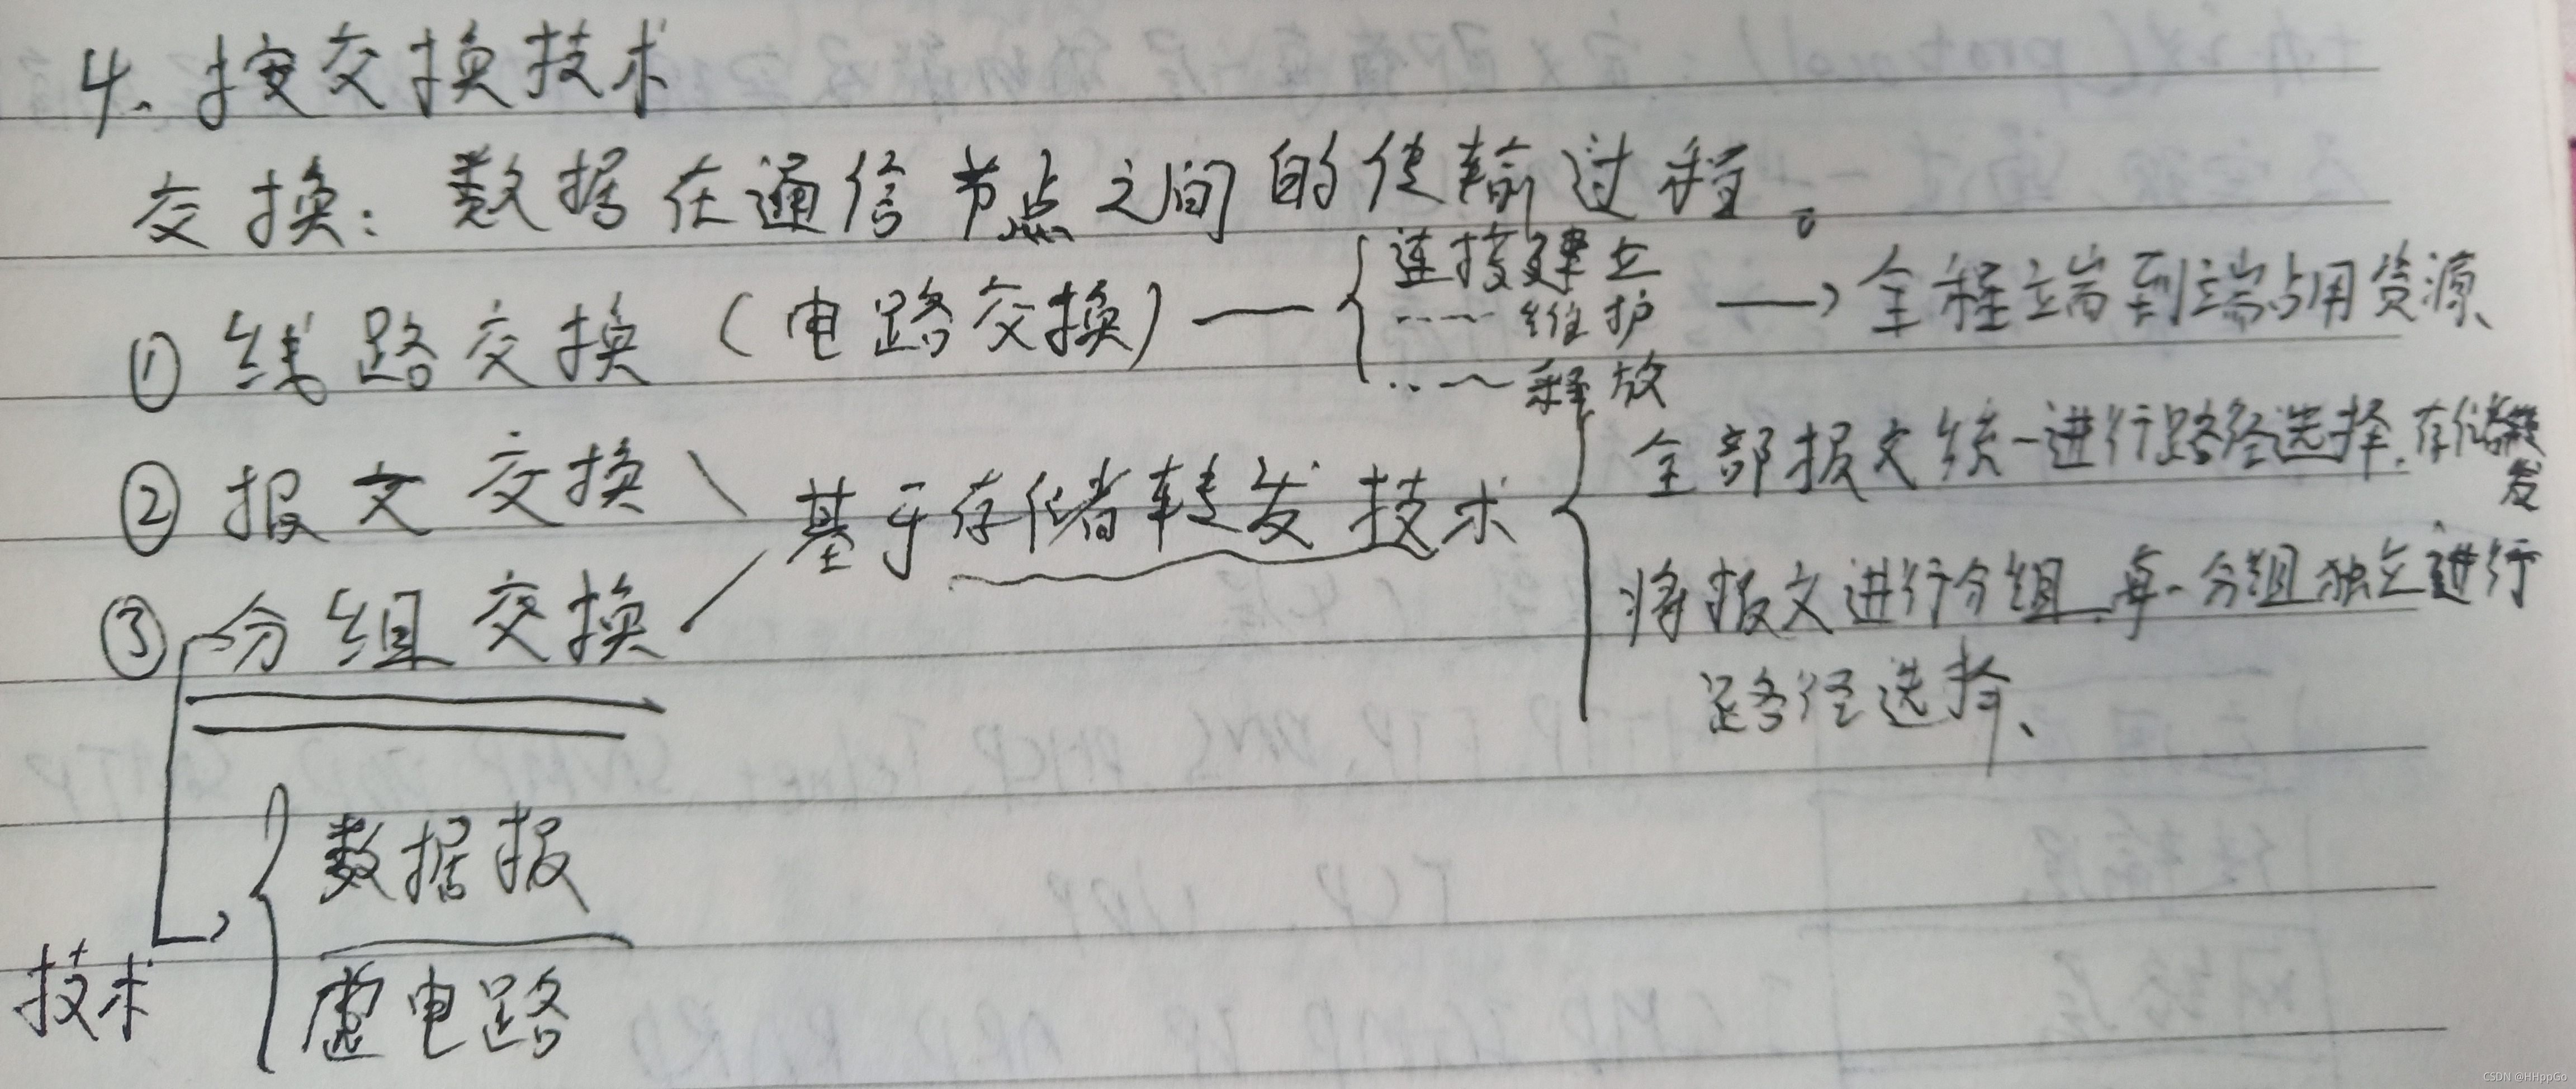 4. 按交换技术
交换：数据在通信节点之间的传输过程。
① 线路交换（电路交换）— { 连接建立
…～ 维护 → 全程端到端占用资源、
…～ 释放
② 报文交换
基于存储转发技术
③ 分组交换
全部报文统一进行路径选择、存储转发
将报文进行分组、每一分组独立进行
路径选择、
技术
数据报
虚电路
CSDN @HHppGo